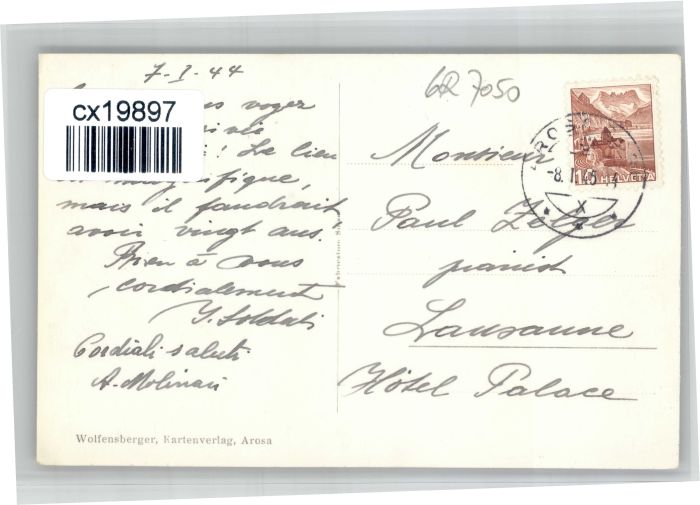 7-I-44
vous voyez
cx19897
! Le lieu
magnifique,
mais il faudrait
avoir vingt ans.
Bien à vous
cordialement
Cordiali saluti
A. Molinari
Wolfensberger, Kartenverlag, Arosa
Fabrication
7050
AROSA
-8.1.
X
10 HELVETIA
Monsieur
Paul
pianist
Lausanne
Hôtel Palace